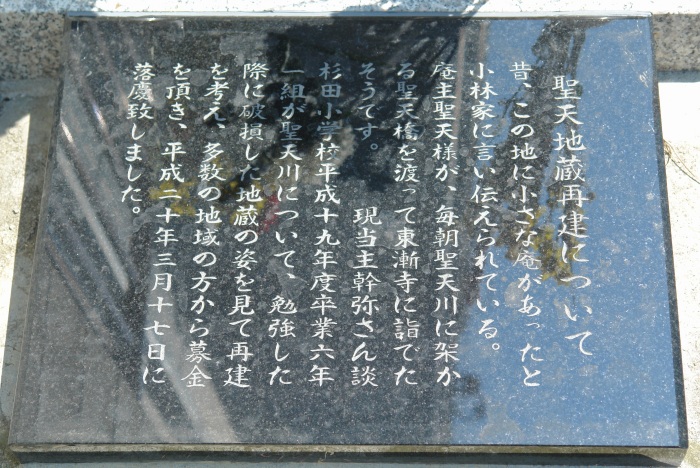 聖天地蔵再建について
昔、この地に小さな庵があったと
小林家に言い伝えられている。
庵主聖天様が、毎朝聖天川に架か
る聖天橋を渡って東漸寺に詣でた
そうです。　現当主幹弥さん談
杉田小学校平成十九年度卒業六年
一組が聖天川について、勉強した
際に破損した地蔵の姿を見て再建
を考え、多数の地域の方から募金
を頂き、平成二十年三月十七日に
落慶致しました。